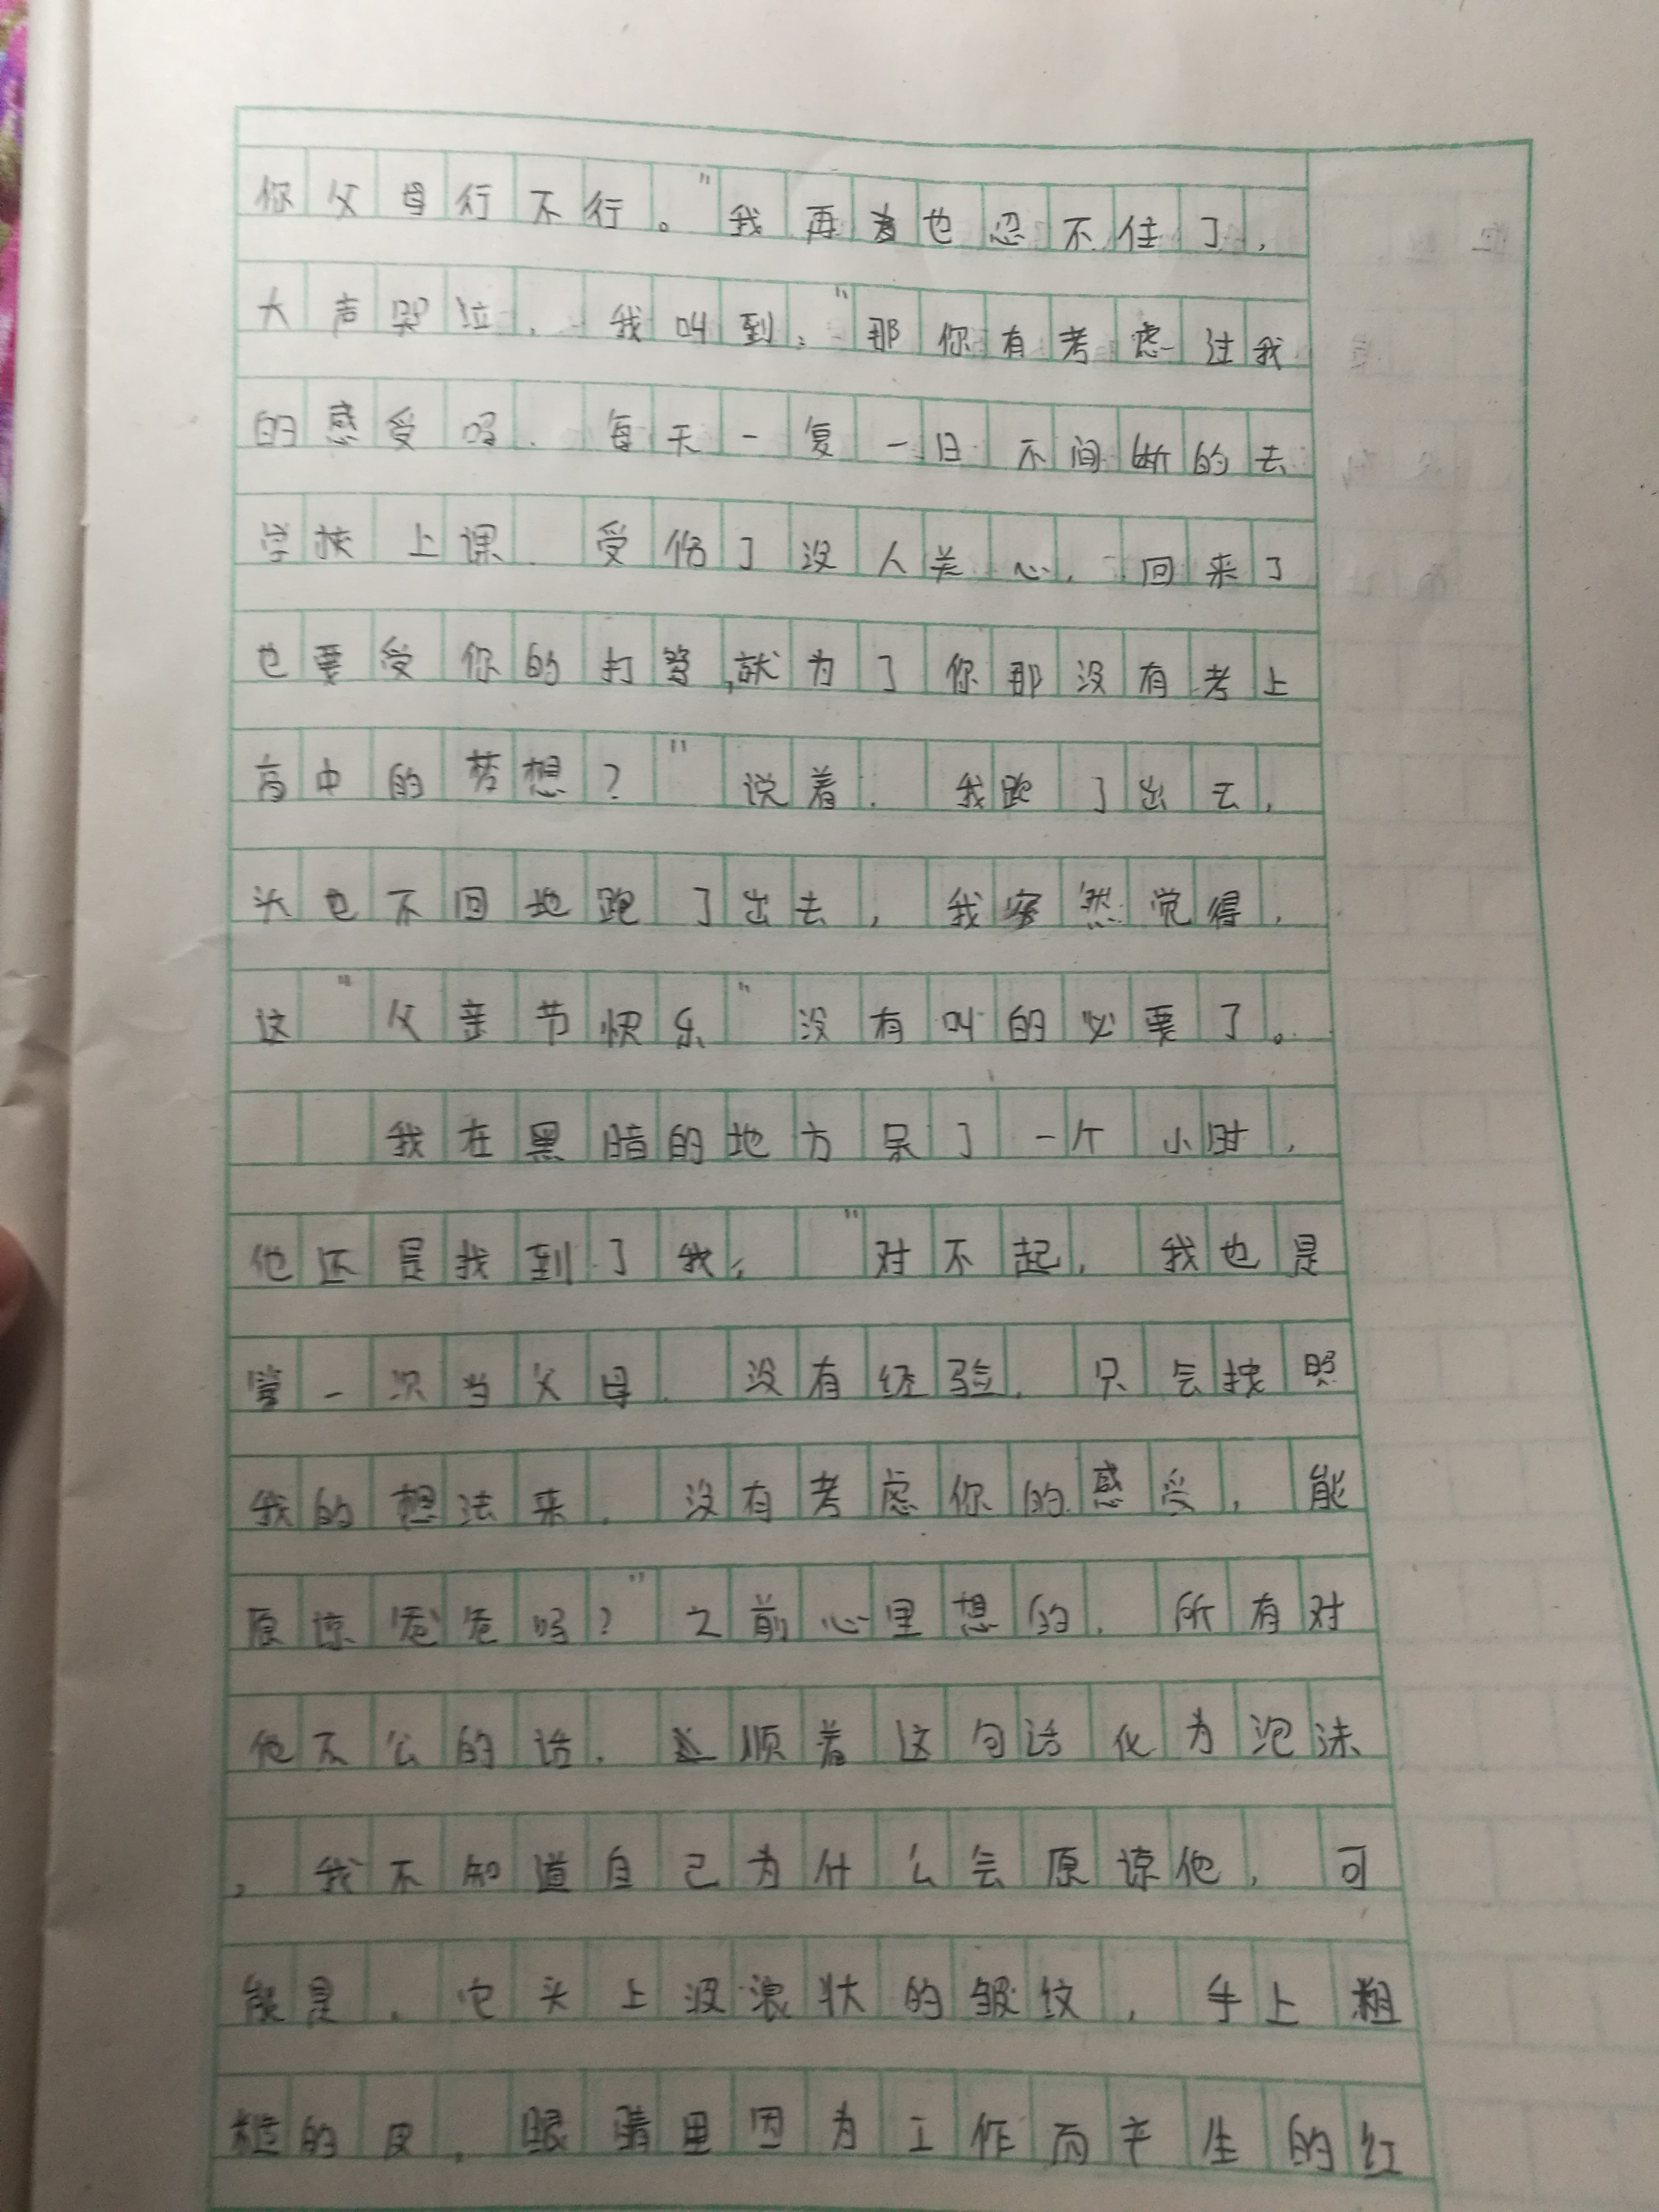 你父母行不行。"我再也忍不住了，
大声哭泣，我叫到："那你有考虑过我
的感受吗，每天一复一日不间断的去
学校上课，受伤了没人关心，回来了
也要受你的打骂，就为了你那没有考上
高中的梦想？"说着，我跑了出去，
头也不回地跑了出去，我突然觉得，
这"父亲节快乐"没有叫的必要了。
我在黑暗的地方呆了一个小时，
他还是找到了我，"对不起，我也是
第一次当父母，没有经验，只会按照
我的想法来，没有考虑你的感受，能
原谅爸爸吗？"之前心里想的，所有对
他不公的话，顺着这句话化为泡沫
，我不知道自己为什么会原谅他，可
能是，它头上波浪状的皱纹，手上粗
糙的皮，眼睛里因为工作而产生的红